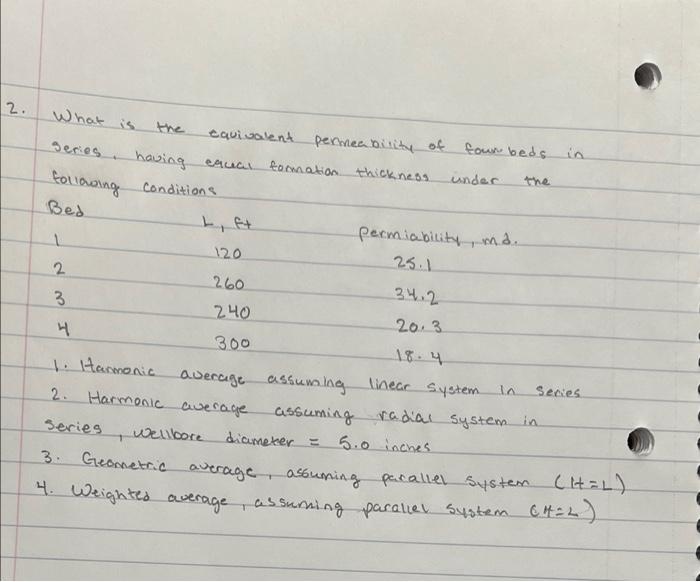 2. What is the equivalent permeability of four beds in
series, having equal formation thickness under the
following conditions
Bed L, ft permiability, md.
1 120 25.1
2 260 34.2
3 240 20.3
4 300 18.4
1. Harmonic average assuming linear system in series
2. Harmonic average assuming radial system in
series, wellbore diameter = 5.0 inches
3. Geometric average, assuming parallel system (H=L)
4. Weighted average, assuming parallel system (H=L)